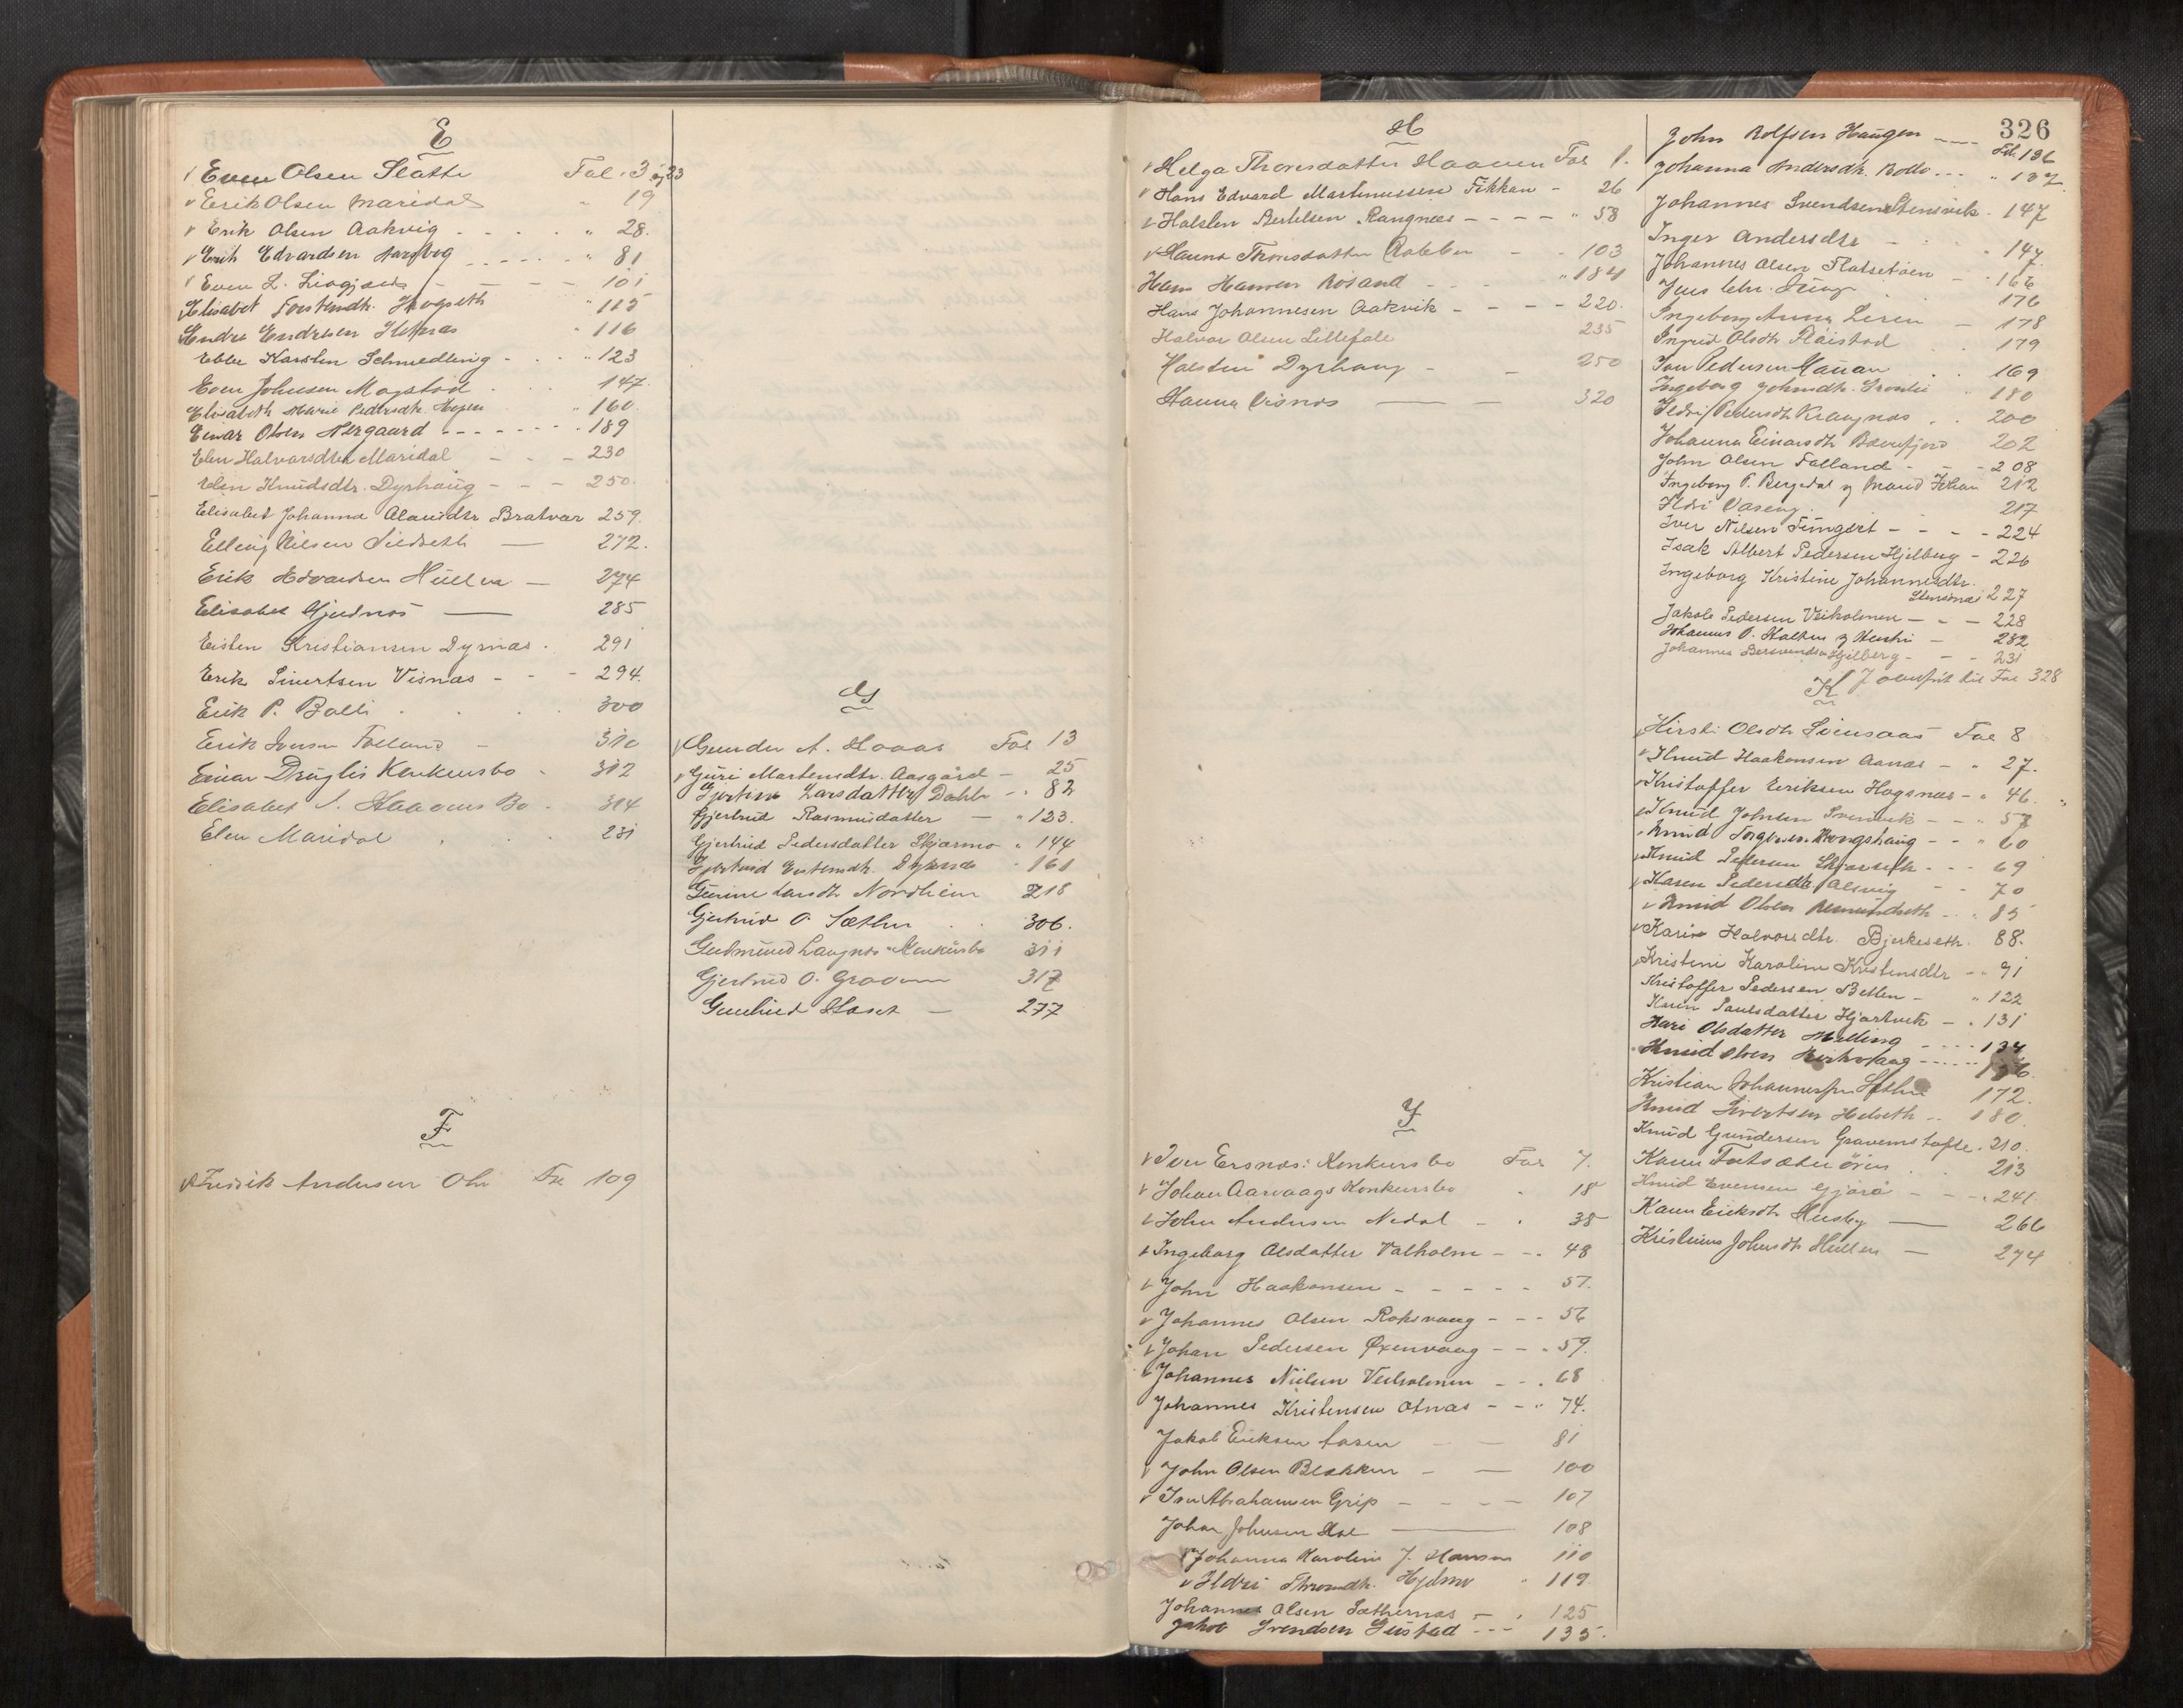 E
Even Olsen Slatte Fol. 3 og 23
Erik Olsen Maridal " 19
Erik Olsen Aakvig " 28.
Erik Edvardsen " 81
Even L. 101
Elisabet 115
Endre Endresen 116
Ebbe Karsten Schmedling " 123
Even Johnsen Magstad 147.
Elisabeth Marie Pedersdtr. Mogen " 160
Einar Olsen Nergaard 189
Elen Halvorsdtr Maridal 230
Elen Knudsdtr. Dyrhaug 250.
Elisabet Johanna Olausdtr Bratvær 259.
Elling Nilsen Sildseth 272.
Erik Edvardsen Hullen 274
Elisabet Gjednas 285
Eisten Kristiansen Dyrnas 291
Erik Sivertsen Visnas 294.
Erik P. Bolli 300
Erik Iversen Folland 310
Einar Druglis Konkursbo 312
Elisabet S. Haavens Bo 314
Elen Maridal 231
F
Fredrik Andersen Fol 109
G
Gunder A. Haaas Fol 13
Guri Martensdtr. Aasgård 25
Larsdatter Dahle 82
Gjertrud Rasmusdatter " 123.
Gjertrud Pedersdatter Skjærmo " 144
Gjertrud Eistensdtr. 161
Larsdtr Nordheim 218
Gjertrud O. Sæther 306.
Gudmund Langnes Konkursbo 311
Gjertrud O. Graven 317
Gunhild Haset 277
H
Helga Thoresdatter Haaven Fol 1.
Hans Edvard Martinussen Fikkan 26
Halsten Bertelsen Rangnes " 58
Hanna Thoresdatter 103
Hans Hansen Rosand " 184
Hans Johannesen Aakvik 220.
Halvor Olsen Lillefale 235
Halstein Dyrhaug 250
Hanna Visnes 320
I
Iver Ersnes: Konkursbo Fol 7.
Johan Aarvaags Konkursbo 18
John Andersen Nedal 38
Ingeborg Olsdatter Valholm 48
John Haakonsen 57.
Johannes Olsen Roksvaag 56
Johan Pedersen Øxenvaag 59.
Johannes Nilsen Veiholmen 68
Johannes Kristensen Otnæs 74.
Jakob Eriksen Aasen 81
John Olsen Blekken 100
Iver Abrahamsen Grip 107
Johan Johnsen Hol 108
Johanna Karoline J. Hansen 110
Ildri Hjelmo 119.
Johannes Olsen Sæthernas 125
Jakob Svendsen Gustad 135.
326
John Rolfsen Haugen Fol. 136
Johanna Andersdtr. Bolle " 137.
Johannes Svendsen Stensvik. 147
Inger Andersdtr 147.
Johannes Olsen Flatsetøen 166
Jens Chr. 176
Ingeborg Anna Leren 178
Ingrid Olsdtr 179
Iver Pedersen Mauan 169
Ingeborg Johnsdtr. 180
Ildri Pedersdtr Kraagnæs 200
Johanna Einarsdtr Bæverfjord 202
John Olsen Folland 208
Ingeborg P. Bergedal og Mand Johan 212
Ildri Vaseng 217
Iver Nilsen 224
Isak Albert Pedersen Hjelberg 226
Ingeborg Kristine Johannesdtr.
Stensnes 227
Jakob Pedersen Veiholmen 228
Johannes O. Halten og Hustru 232
Johannes Hjelberg 231
J overført til Fol 328
K
Kirsti Olsdtr Fol 8
Knud Haakonsen Aanæs " 27.
Kristoffer Eriksen Hogsnæs " 46.
Knud Johnsen 57
Knud Kongshaug " 60
Knud Pedersen 69
Karen Pedersdtr Alsvig 70
Knud Olsen 85
Karin Halvorsdtr. Bjerkeseth. 88.
Kristine Karoline Kristensdtr 91
Kristoffer Pedersen Betten " 122
Karen Paulsdatter Hjortvik 131
Kari Olsdatter Melling 134
Knud Olsen 156.
Kristian Johannessen Sæther 172.
Knud Sivertsen Helseth 180.
Knud Gundersen 210.
Karen 213
Knud Evensen Gjøra 241.
Karen Eriksdtr Husby 266
Johnsdtr Hullen 274